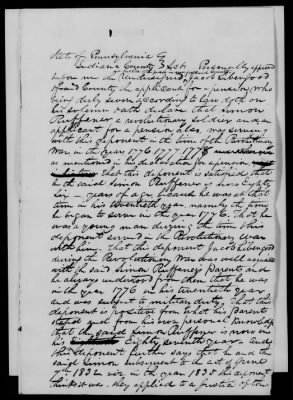 State of Pennsylvania
Indiana County Sct. Personally appeared
before me the undersigned Jacob Libengood
of said County the applicant for a pension, who
being duly sworn according to law, doth on
his solemn oath declare that Simon
Ruffener a revolutionary soldier and an
applicant for a pension also, was serving
with this deponent in the time of the Revolutionary
War in the year 1776 1777 1778
as mentioned in his declaration for a pension,
that this deponent is satisfied that
he the said Simon Ruffener is now Eighty
six years of age because he was at that
time in his twentieth year, namely the time
he began to serve in the year 1776. That he
was a young man during the time this
deponent served in the Revolutionary War
with him, that this deponent Jacob Libengood
during the Revolution War was well acquainted
with the said Simon Ruffener Parents and
he always understood from them that he was
in the year 1776 in his twentieth year
and was subject to military duty, That this
deponent is positive from what his Parents
stated and from his own personal knowledge
that the said Simon Ruffner is now in
his Eighty seventh year. And
this deponent further says that he and the
said Simon subsequent to the act of June
7th 1832 viz in the year 1833 this deponent
thinks it was. they applied to a Justice of the